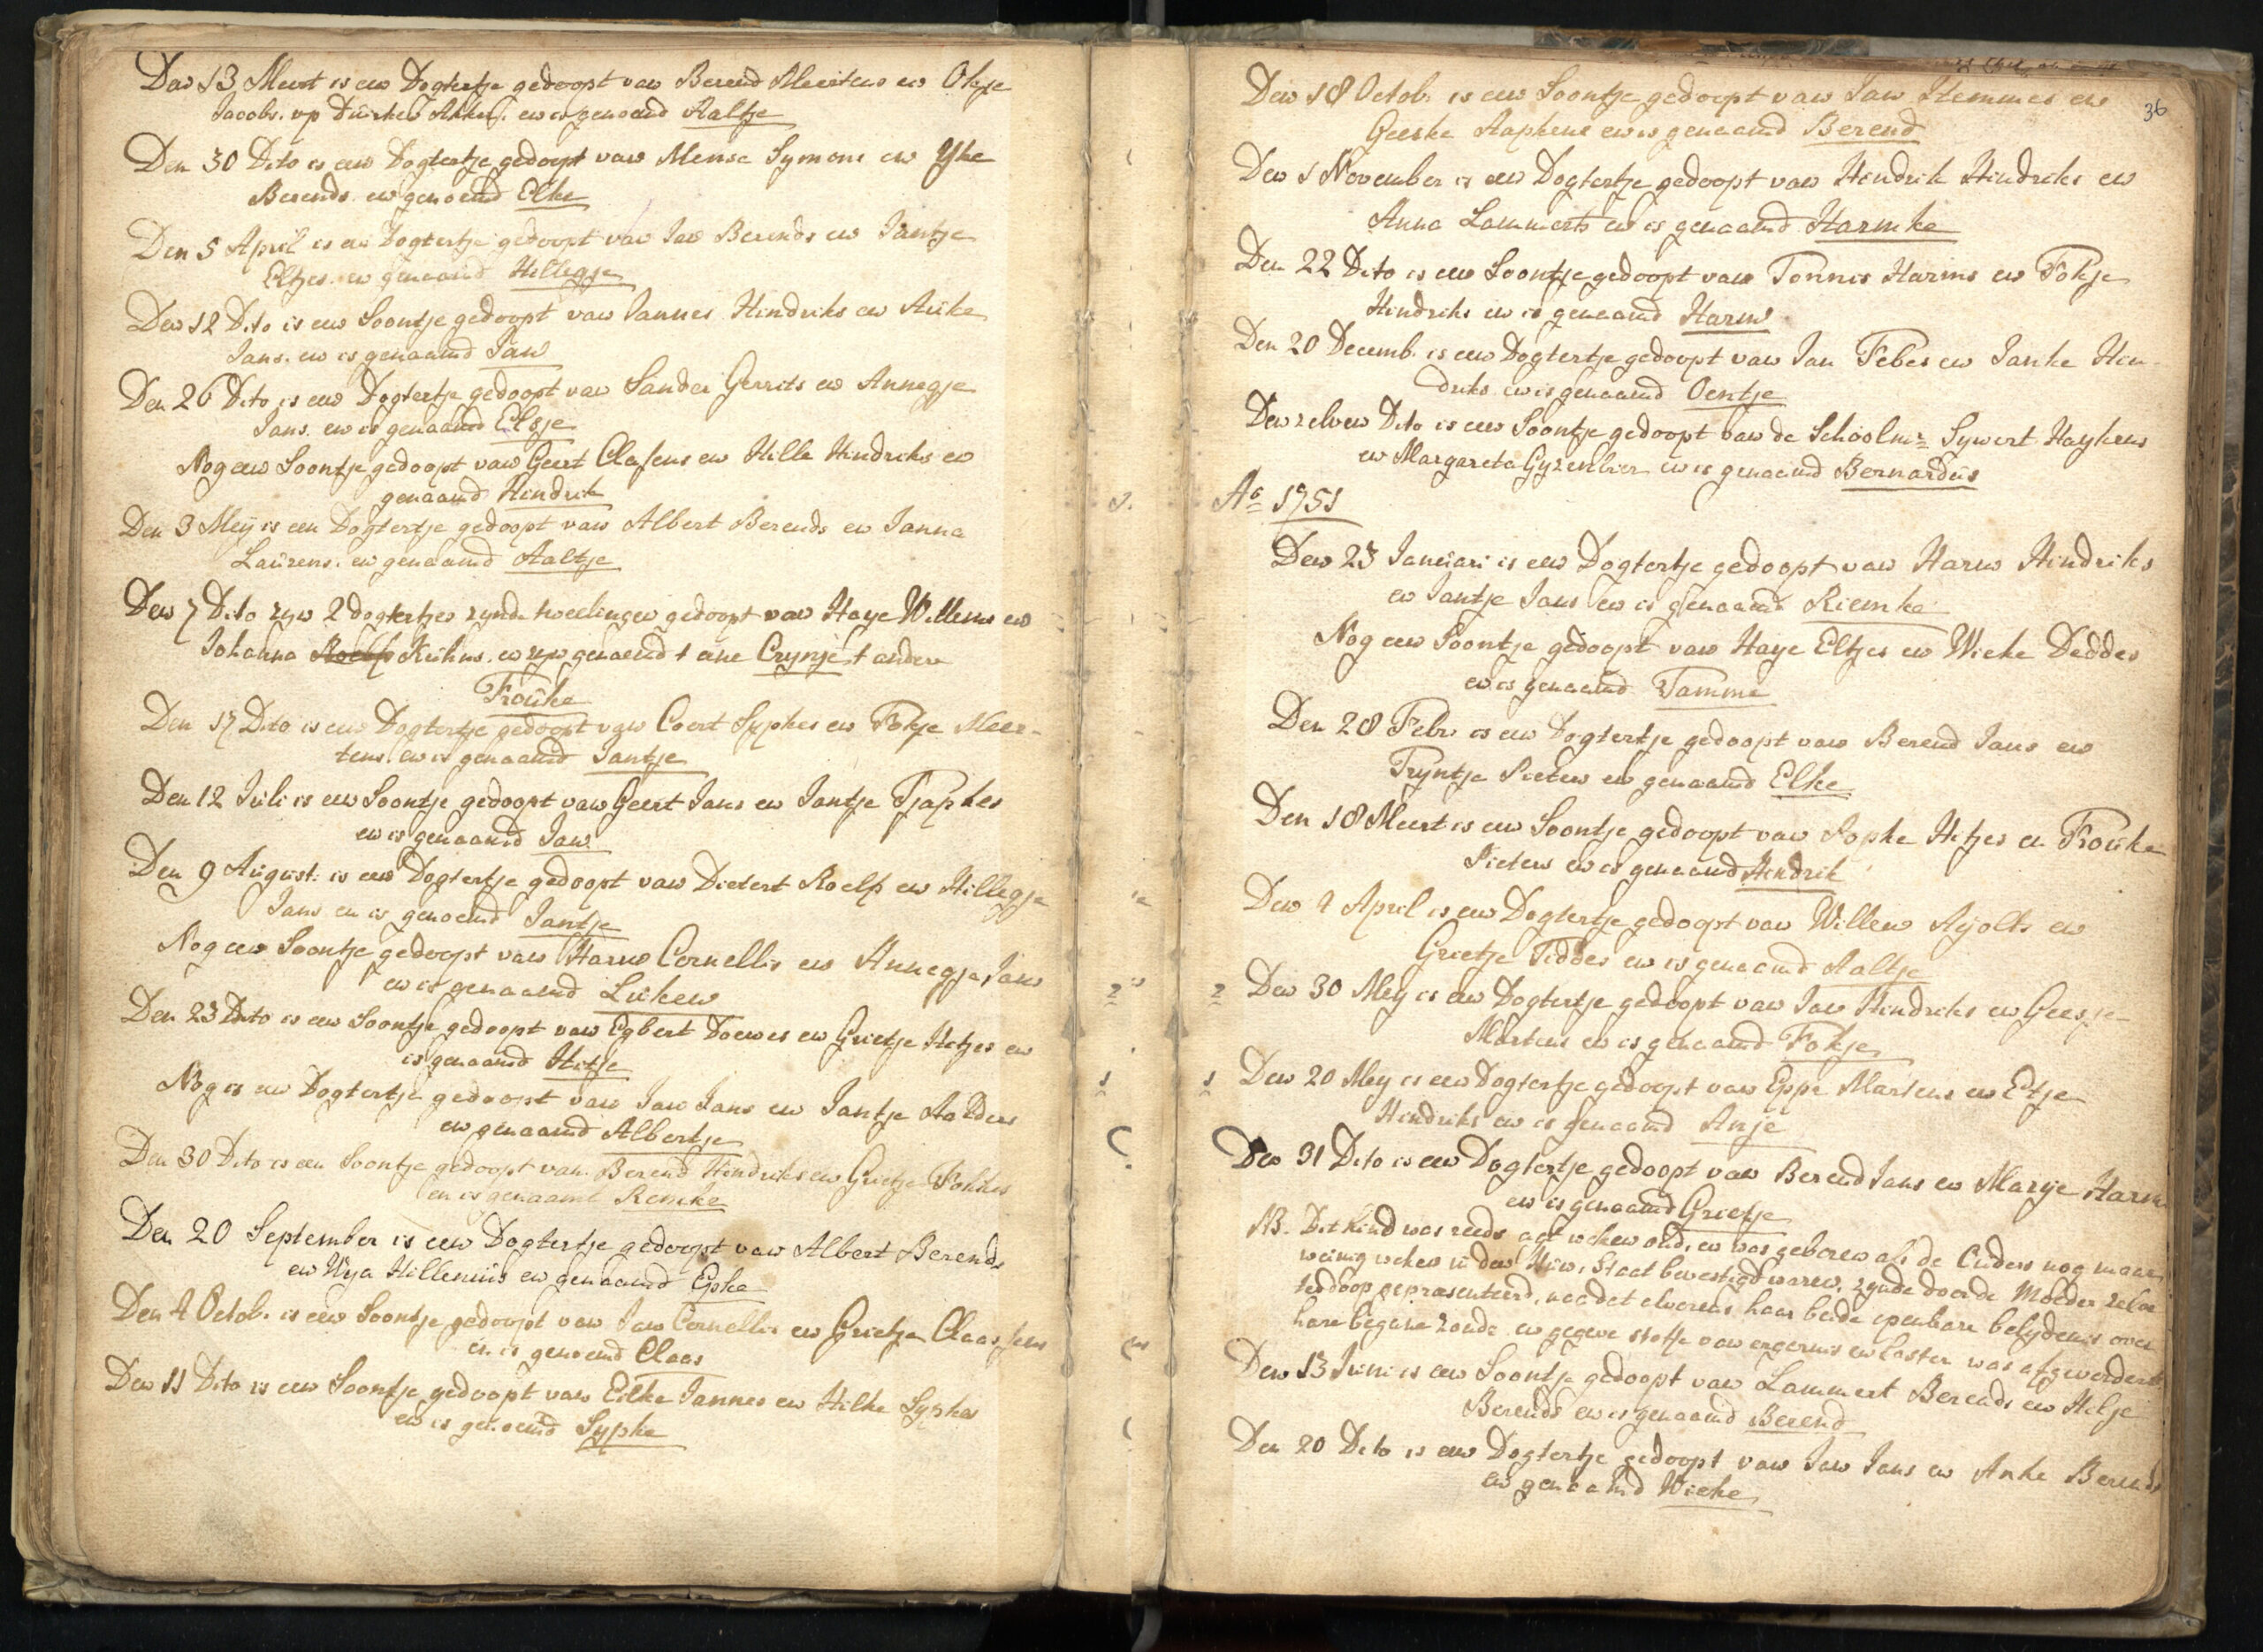 Den 13 Meert is een Dogtertje gedoopt van Berend Meertens en Okje
Jacobs. op Duirken Akker. en is genoemd Aaltje
Den 30 Dito is een Dogtertje gedoopt van Mense Symons en Yke
Berends. en genoemd Elke
Den 5 April is een Dogtertje gedoopt van Jan Berends en Jantje
Eltjes. en genaamd Hillegje
Den 12 Dito is een Soontje gedoopt van Jannes Hindriks en Auke
Jans. en is genaamd Jan
Den 26 Dito is een Dogtertje gedoopt van Sander Gerrits en Annegje
Jans. en is genaamd Elsje
Nog een Soontje gedoopt van Geert Clasens en Hille Hindriks en
genaamd Hindrik
Den 3 Meij is een Dogtertje gedoopt van Albert Berends en Janna
Laurens. en genaamd Aaltje
Den 7 Dito zyn 2 dogtertjes zynde tweelingen gedoopt van Haye Willems en
Johanna Roelfs Kuhns. en zyn genaemd t eene Crynje t andere
Frouke
Den 17 Dito is een Dogtertje gedoopt van Coert Sypkes en Fokje Meer-
tens. en is genaamd Jantje
Den 12 Juli is een Soontje gedoopt van Geert Jans en Jantje Tjapkes
en is genaamd Jan
Den 9 August: is een Dogtertje gedoopt van Dietert Roelfs en Hillegje
Jans en is genoemd Jantje
Nog een Soontje gedoopt van Harm Cornellis en Annegje Jans
en is genaamd Luken
Den 23 Dito is een Soontje gedoopt van Egbert Doewes en Grietje Hitjes en
is genaamd Hitje
Nog is een Dogtertje gedoopt van Jan Jans en Jantje Aalders
en genaamd Albertje
Den 30 Dito is een Soontje gedoopt van Berend Hindriks en Grietje Fokkes
en is genaamd Remke
Den 20 September is een Dogtertje gedoopt van Albert Berends
en Wya Hillenius en genaamd Epke
Den 4 Octob. is een Soontje gedoopt van Jan Cornellis en Grietje Claassens
en is genoemd Claas
Den 11 Dito is een Soontje gedoopt van Eilke Jannes en Hilke Sypkes
en is genoemd Sypke
36
Den 18 Octob. is een Soontje gedoopt van Jan Hemmes en
Geeske Aapkens en is genaamd Berend
Den 1 November is een Dogtertje gedoopt van Hindrik Hindriks en
Anna Lammerts en is genaamd Harmke
Den 22 Dito is een Soontje gedoopt van Tonnis Harms en Fokje
Hindriks en is genaamd Harm
Den 20 Decemb. is een Dogtertje gedoopt van Jan Febes en Janke Hin
driks en is genaamd Oentje
Den zelven Dito is een Soontje gedoopt van de Schoolmr Sywert Haykens
en Margareta Gyzenbier en is genaamd Bernardus
Ao 1751
Den 23 Januari is een Dogtertje gedoopt van Harm Hindriks
en Jantje Jans en is genaamd Riemke
Nog een Soontje gedoopt van Haye Eltjes en Wieke Deddes
en is genaamd Tamme
Den 28 Febr. is een Dogtertje gedoopt van Berend Jans en
Tryntje Pieters en genaamd Elke
Den 18 Meert is een Soontje gedoopt van Popke Hitjes en Frouke
Pieters en is genaamd Hindrik
Den 2 April is een Dogtertje gedoopt van Willem Ayolts en
Grietje Tiddes en is genaamd Aaltje
2 Den 30 Mey is een Dogtertje gedoopt van Jan Hindriks en Geesje
Martens en is genaamd Fokje
1 Den 20 Mey is een Dogtertje gedoopt van Eppe Martens en Etje
Hindriks en is genaamd Anje
Den 31 Dito is een Dogtertje gedoopt van Berend Jans en Marije Harms
en is genaamd Grietje
NB. Dit kind was reeds agt weken oud, en was geboren als de Ouders nog maar
weinig weken in den Huw. Staat bevestigd waren, zynde door de Moeder zelve
ten doop gepraesenteerd, na dat alvorens haar beide openbare belydenis over
hare begane zonde en gegeve stoffe van ergernis en laster was afgevorderd.
Den 13 Juni is een Soontje gedoopt van Lammert Berends en Hilje
Berends en is genaamd Berend
Den 20 Dito is een Dogtertje gedoopt van Jan Jans en Anke Berends
en genaamd Wieke